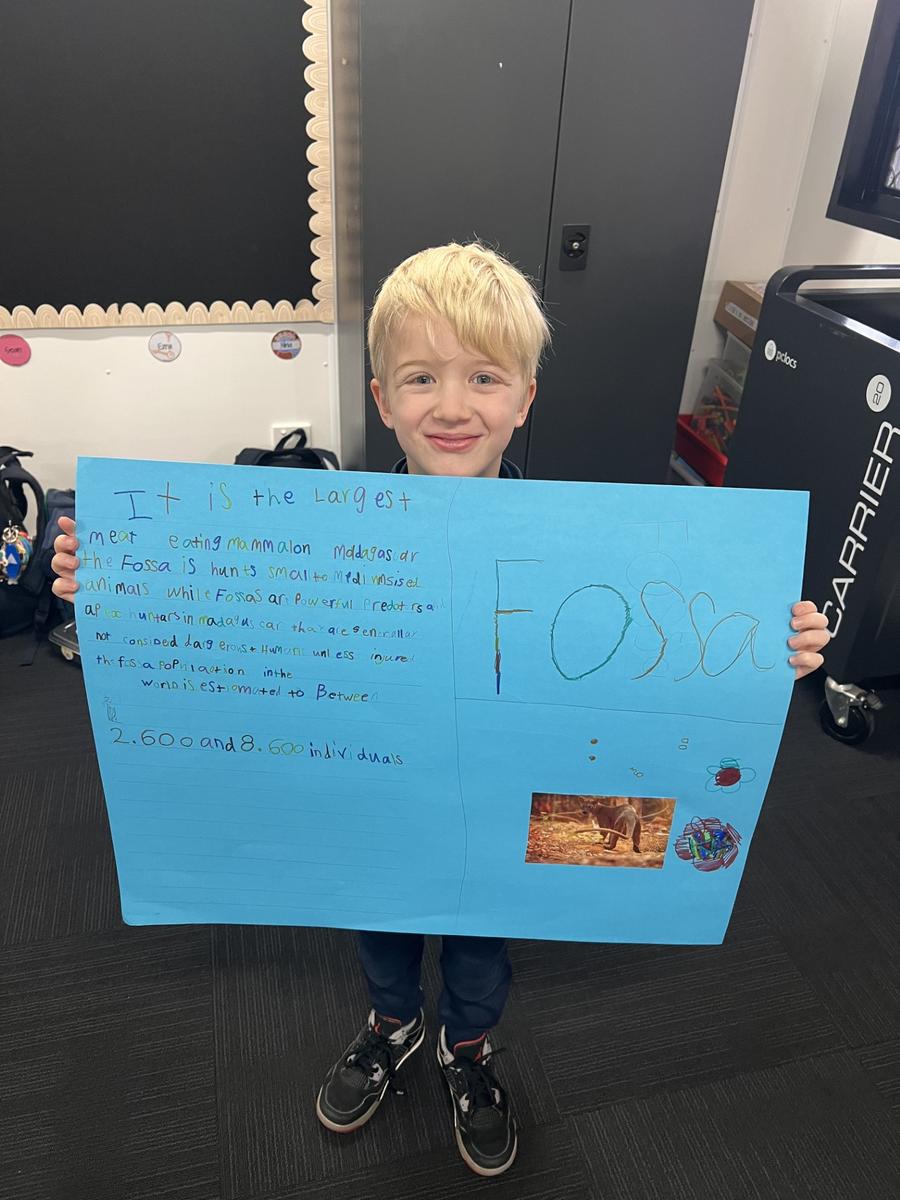 It is the Largest
meat eating mammalon Madagascar
the Fossa is hunts smal to Medi umsised
animals while Fossas are Powerful Predot rs a
ap ex huntars in madagas car that are generallar
not consided dang erous t Humans unless injured
the fossa poPhlaation inthe
world is estiomated to Between
2.600 and 8.600 individuals
Fossa
pclocs
CARRIER
20
Ezra